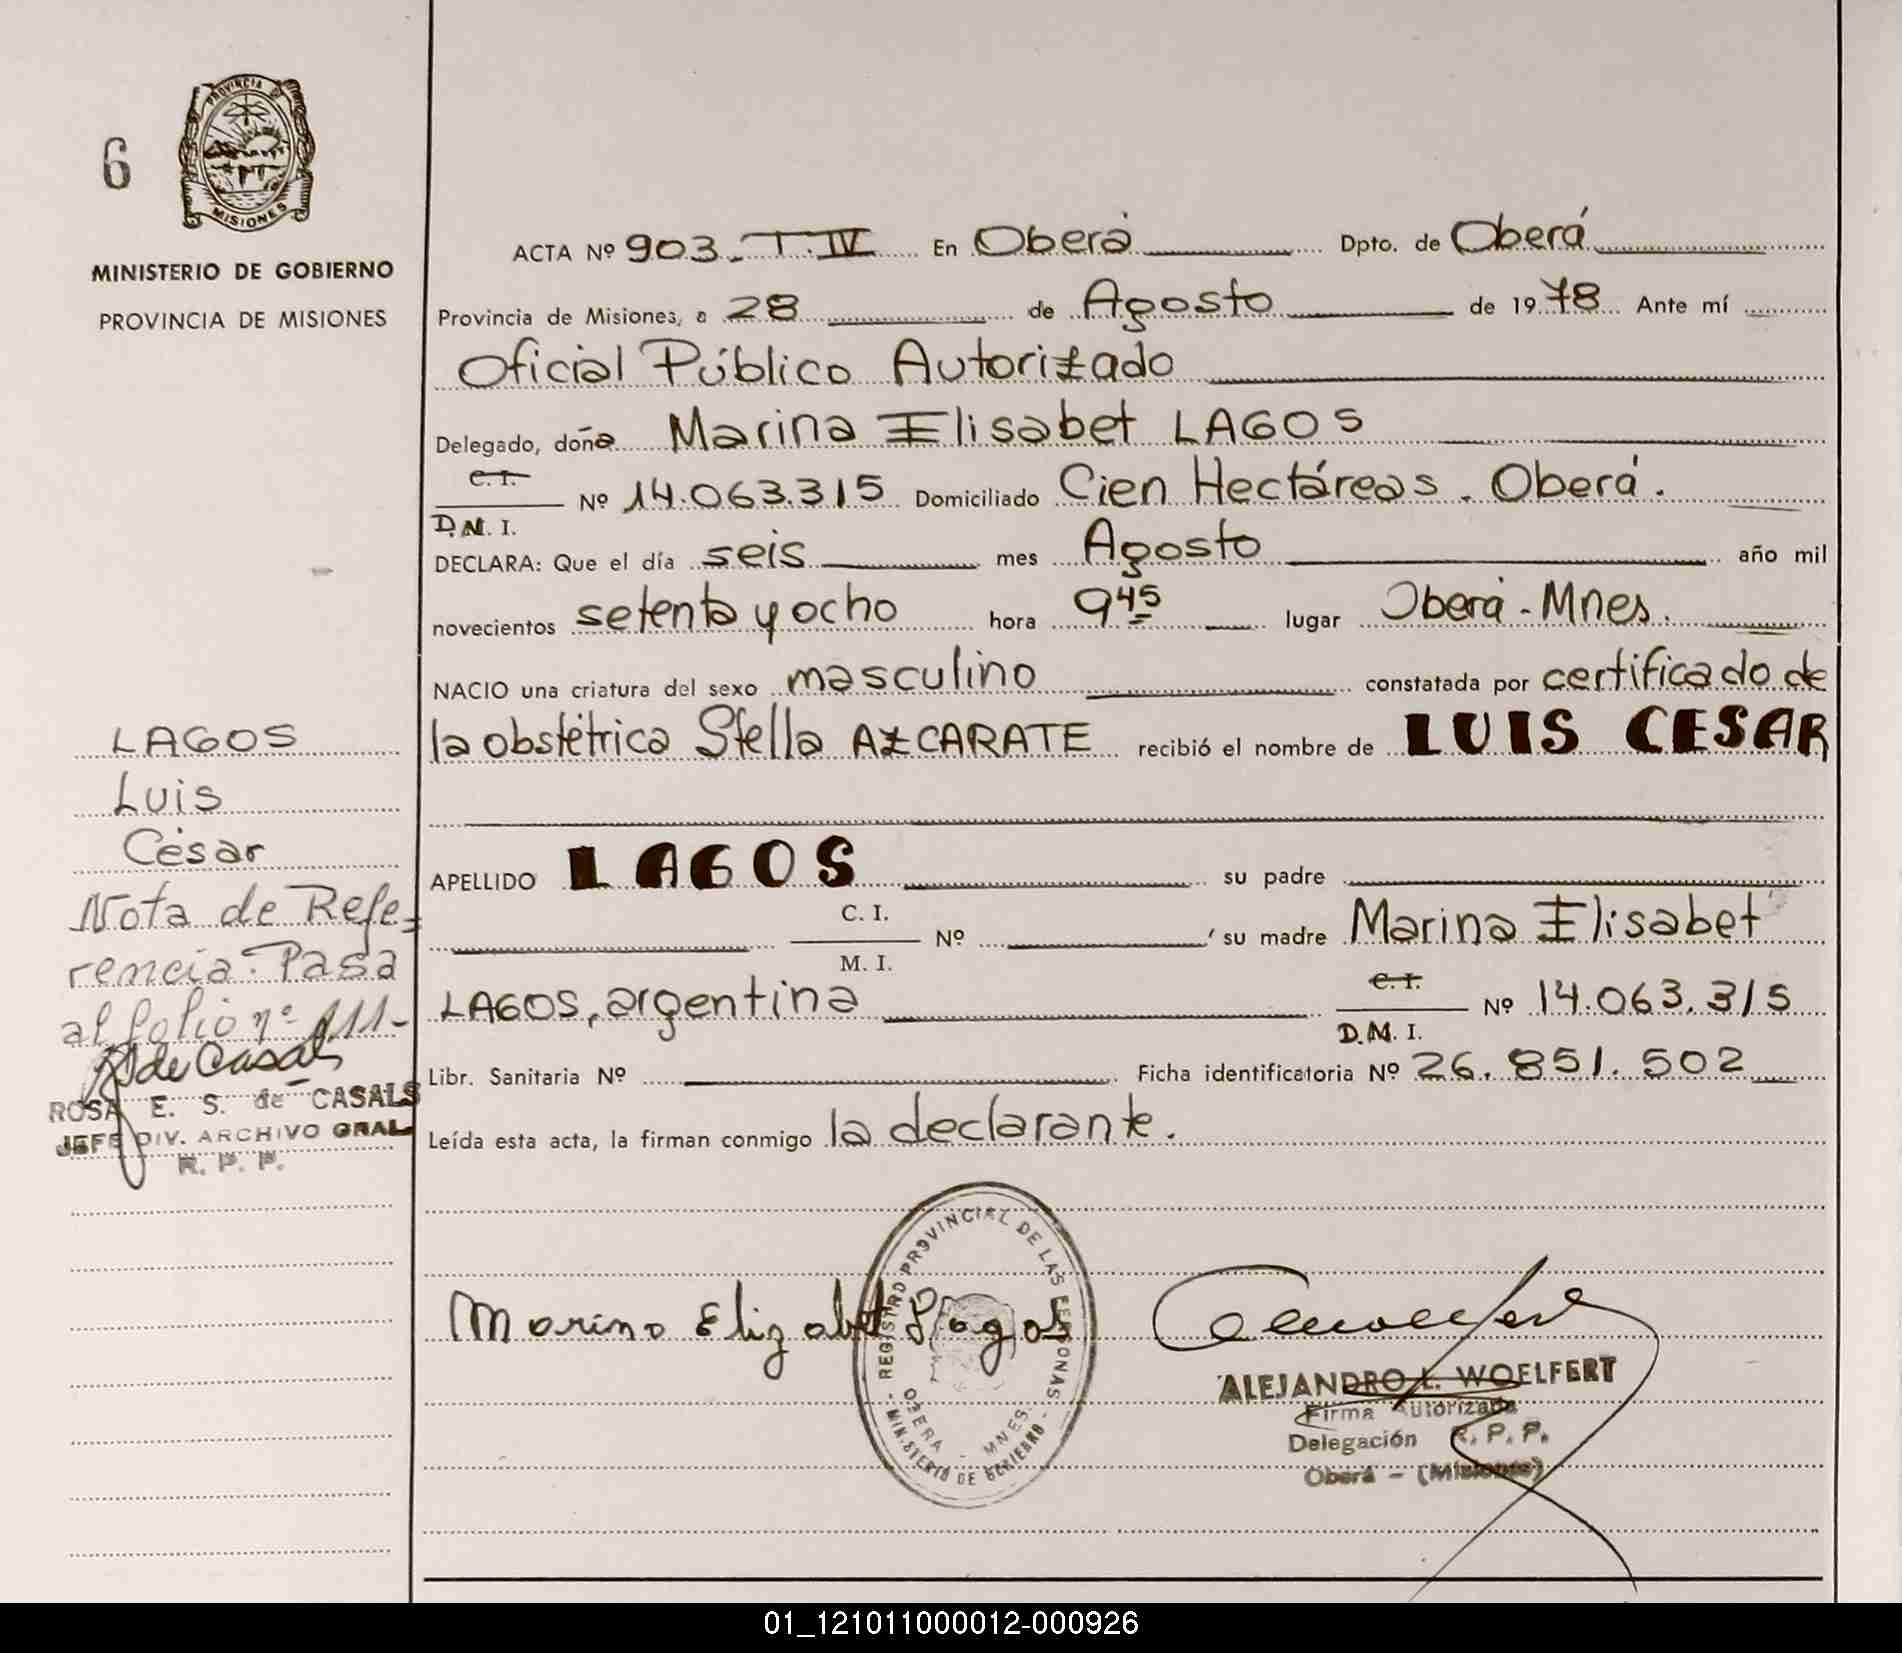 6
PROVINCIA DE
MISIONES
MINISTERIO DE GOBIERNO
PROVINCIA DE MISIONES
ACTA Nº 903. T. IV En Oberá Dpto. de Oberá
Provincia de Misiones, a 28 de Agosto de 1978 Ante mí
Oficial Público Autorizado
Delegado, doña Marina Elisabet LAGOS
C. I.
Nº 14.063.315 Domiciliado Cien Hectáreas. Oberá.
D.N. I.
DECLARA: Que el día seis mes Agosto año mil
novecientos setenta y ocho hora 9 45 lugar Oberá - Mnes.
NACIO una criatura del sexo masculino constatada por certificado de
la obstétrica Stella AZCARATE recibió el nombre de LUIS CESAR
APELLIDO LAGOS su padre
C. I.
Nº su madre Marina Elisabet
M. I.
LAGOS, argentina
C. I.
Nº 14.063.315
D.N. I.
Libr. Sanitaria Nº Ficha identificatoria Nº 26.851.502
Leída esta acta, la firman conmigo la declarante.
LAGOS
Luis
César
Nota de Refe-
rencia: Pasa
al folio nº 111-
R S de Casals
ROSA E. S. de CASALS
JEFE DIV. ARCHIVO GRAL
R. P. P.
Marina Elizabet Lagos
REGISTRO PROVINCIAL DE LAS PERSONAS
OBERA - MNES.
- MINISTERIO DE GOBIERNO -
ALEJANDRO L. WOELFERT
Firma Autorizada
Delegación R. P. P.
Oberá - (Misiones)
01_121011000012-000926